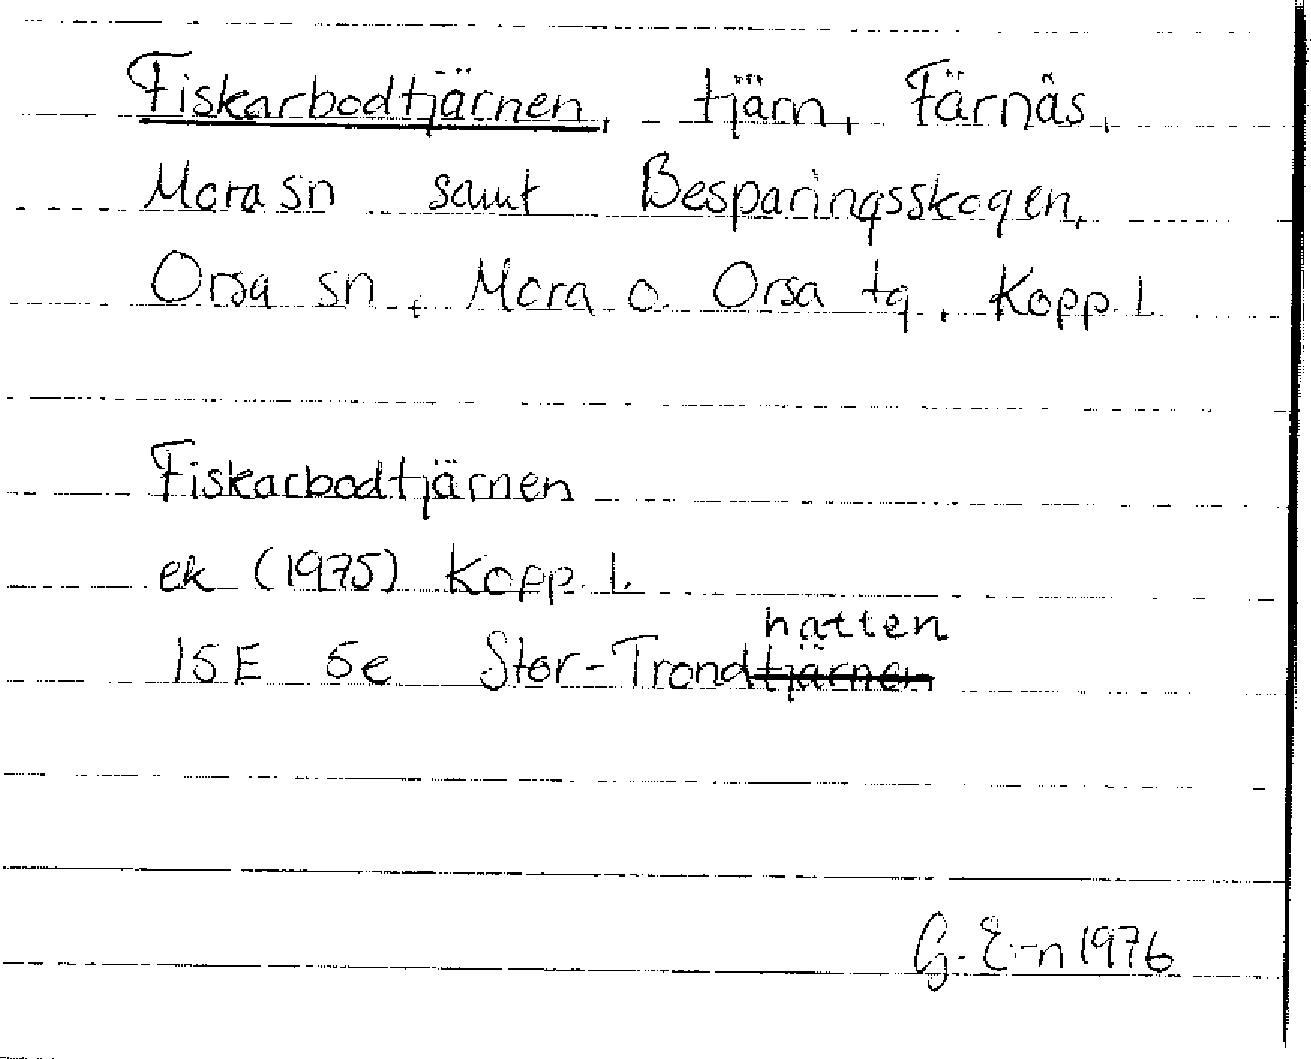 Fiskarbodtjärnen, tjärn, Färnäs,
Mora sn samt Besparingsskogen,
Orsa sn, Mora o. Orsa tg. Kopp. l.
Fiskarbodtjärnen
ek (1975) Kopp. l.
hatten
15E 5e Stor-Trondtjärnen
G. E-n 1976